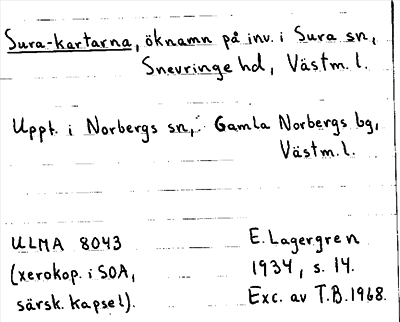 Sura-kartarna, öknamn på inv. i Sura sn,
Snevringe hd, Västm. l.
Uppt. i Norbergs sn, Gamla Norbergs bg,
Västm. l.
ULMA 8043
(xerokop. i SOA,
särsk. kapsel).
E. Lagergren
1934, s. 14.
Exc. av T.B. 1968.